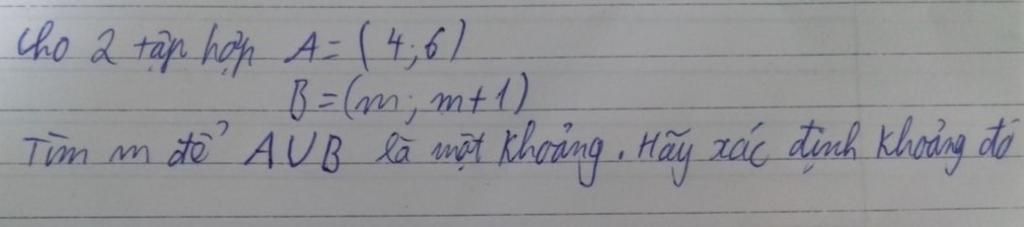 Cho 2 tập hợp A = (4; 6)
B = (m; m+1)
Tìm m để A∪B là một khoảng. Hãy xác định khoảng đó